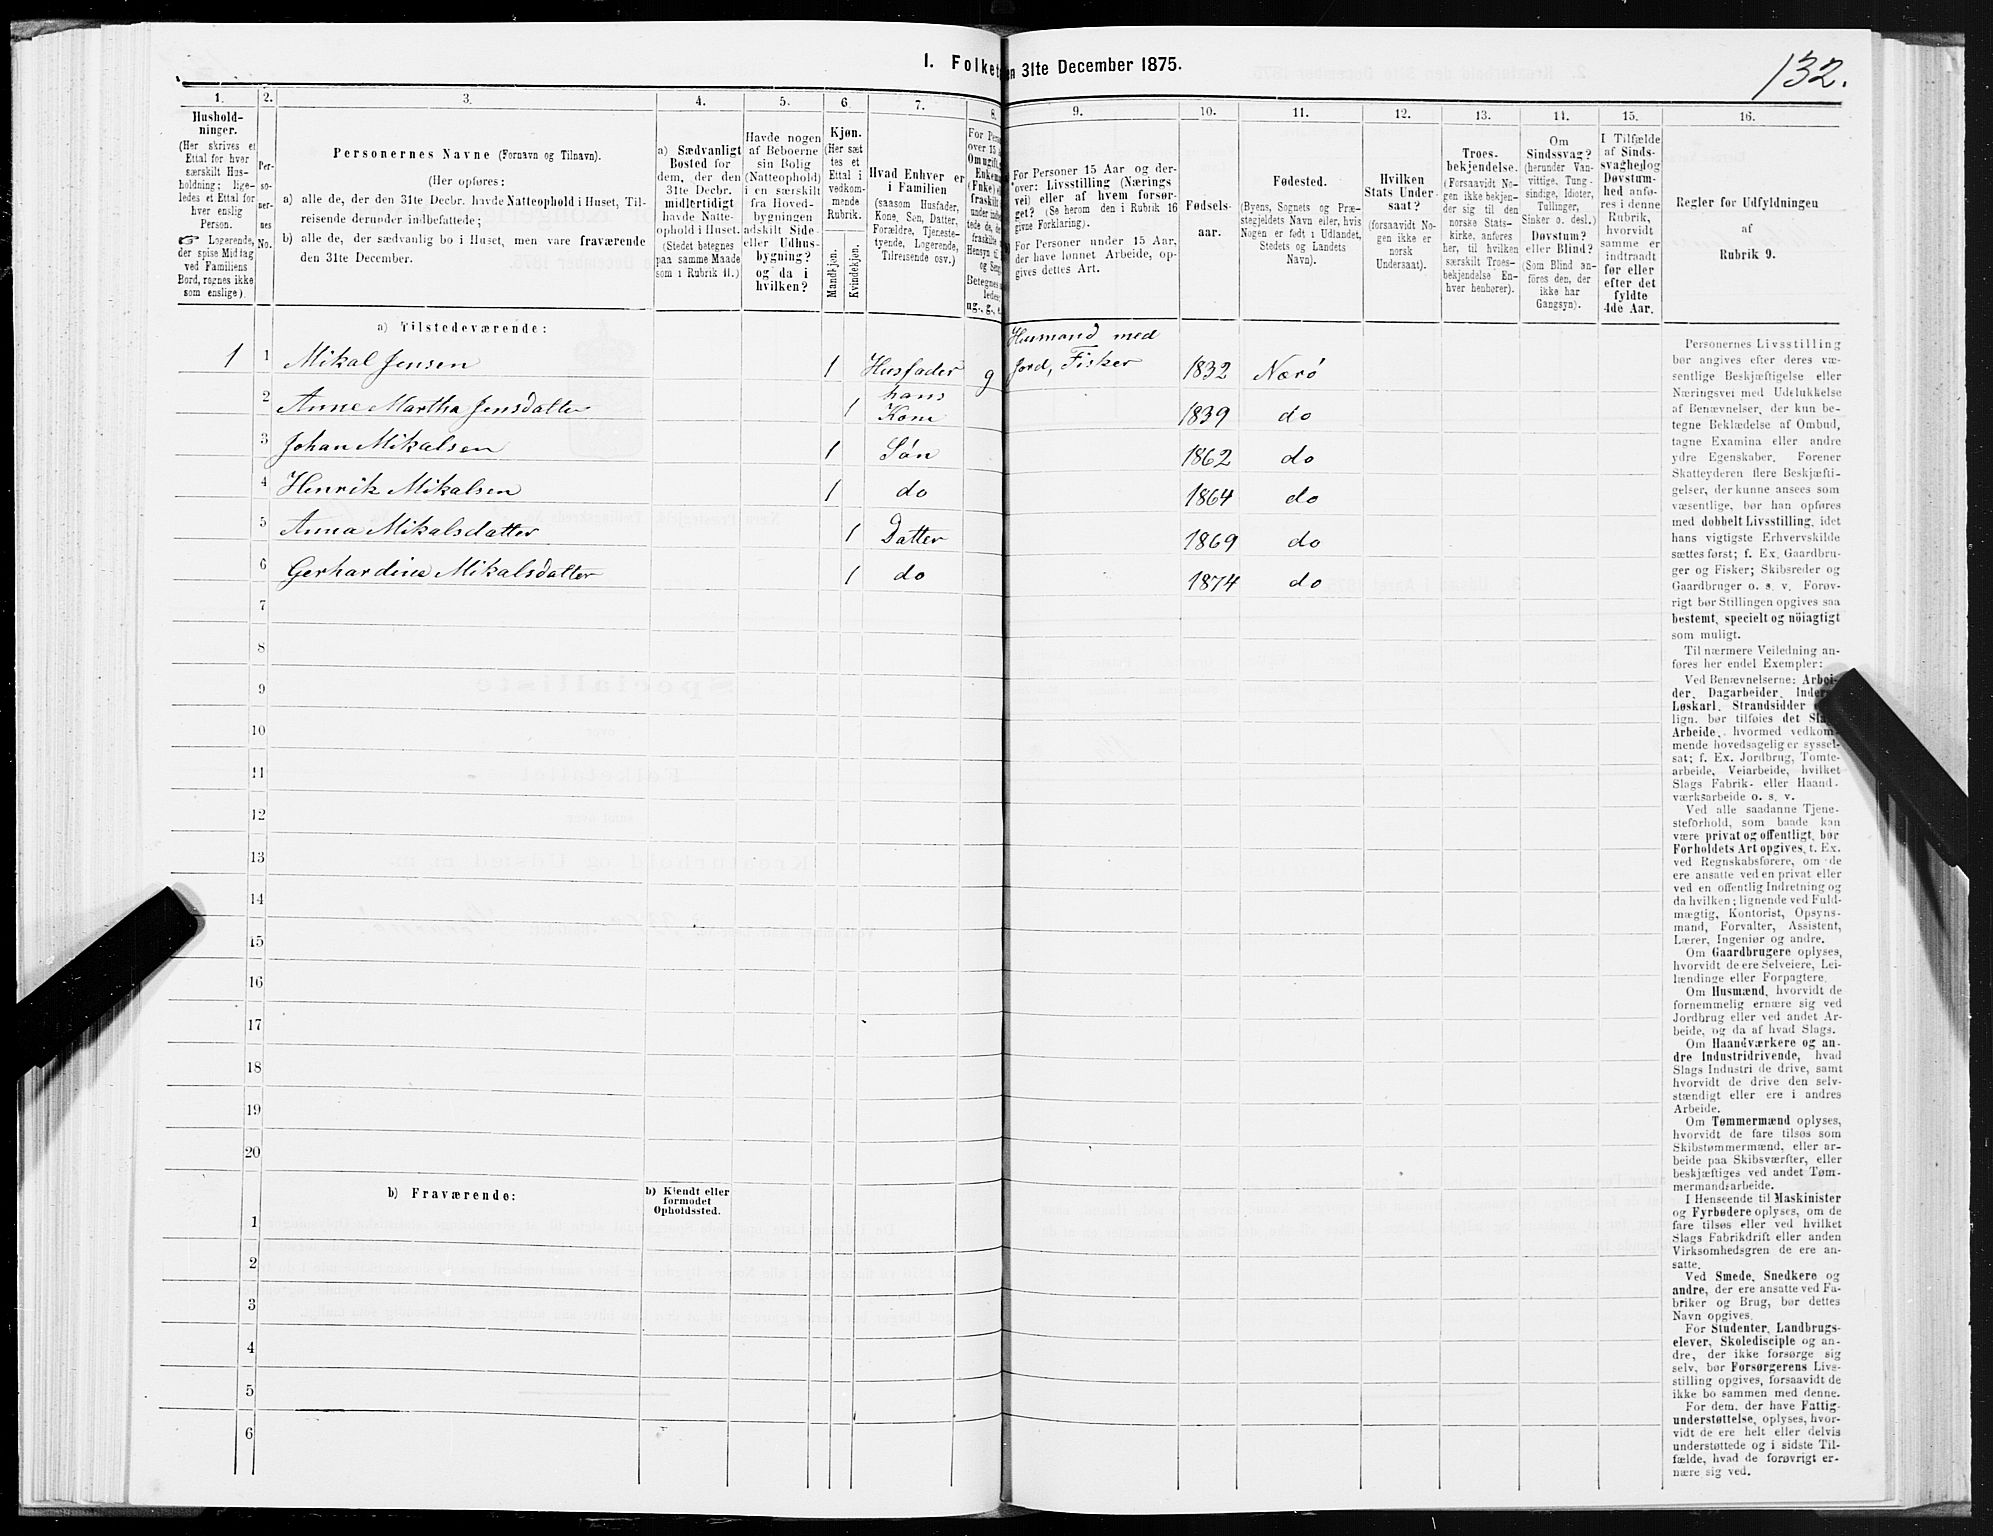 132.
I. Folket
en 31te December 1875.
1. 2. 3. 4. 5. 6. 7. 8. 9. 10. 11. 12. 13. 14. 15. 16.
Hushold-
ninger.
(Her skrives et
Ettal for hver
særskilt Hus-
holdning; lige-
ledes et Ettal for
hver enslig
Person.
☞ Logerende,
der spise Middag
ved Familiens
Bord, regnes ikke
som enslige).
Per-
so-
ner-
nes
No.
Personernes Navne (Fornavn og Tilnavn).
(Her opføres:
a) alle de, der den 31te Decbr. havde Natteophold i Huset, Til-
reisende derunder indbefattede;
b) alle de, der sædvanlig bo i Huset, men vare fraværende
den 31te December.
a) Sædvanligt
Bosted for
dem, der den
31te Decbr.
midlertidigt
havde Natte-
ophold i Huset.
(Stedet betegnes
paa samme Maade
som i Rubrik 11.)
Havde nogen
af Beboerne
sin Bolig
(Natteophold)
i en særskilt
fra Hoved-
bygningen
adskilt Side-
eller Udhus-
bygning?
og da i
hvilken?
Kjøn.
(Her sæt
tes et
Ettal i
vedkom-
mende
Rubrik.
Mandkjøn.
Kvindekjøn.
Hvad Enhver er
i Familien
(saasom Husfader,
Kone, Søn, Datter,
Forældre, Tjeneste-
tyende, Logerende,
Tilreisende osv.)
For Pers
over 15
Om ugift,
Enkem
(Fnke)
fraskilt
under indbe
tede de, de
fraskilte
Hensyn til
og Seng
Betegnes
ledes:
ug., g., e.
For Personer 15 Aar og der-
over: Livsstilling (Nærings
vei) eller af hvem forsør-
get? (Se herom den i Rubrik 16
givne Forklaring).
For Personer under 15 Aar,
der have lønnet Arbeide, op-
gives dettes Art.
Fødsels-
aar.
Fødested.
(Byens, Sognets og Præ-
stegjeldets Navn eller, hvis
Nogen er født i Udlandet,
Stedets og Landets
Navn).
Hvilken
Stats Under-
saat?
(forsaavidt No-
gen ikke er
norsk
Undersaat).
Troes-
bekjendelse.
(Forsaavidt No-
gen ikke bekjen-
der sig til den
norske Stats-
kirke, anføres
her, til hvilken
særskilt Troes-
bekjendelse En-
hver henhører).
Om
Sindssvag?
(herunder Van-
vittige, Tung-
sindige, Idioter,
Tullinger,
Sinker o. desl.)
Døvstum?
eller Blind?
(Som Blind an-
føres den, der
ikke har
Gangsyn).
I Tilfælde
af Sinds-
svaghed og
Døvstum-
hed anfø-
res i denne
Rubrik,
hvorvidt
samme er
indtraadt
før eller
efter det
fyldte
4de Aar.
Regler for Udfyldningen
af
Rubrik 9.
a) Tilstedeværende:
1 1 Mikal Jensen 1 Husfader g Husmand med Jord, Fisker 1832 Nærø
2 Anne Martha Jensdatter 1 hans Kone 1839 do
3 Johan Mikalsen 1 Søn 1862 do
4 Henrik Mikalsen 1 do 1864 do
5 Anna Mikalsdatter 1 Datter 1869 do
6 Gerhardine Mikalsdatter 1 do 1874 do
7
8
9
10
11
12
13
14
15
16
17
18
19
20
b) Fraværende:
b) Kjendt eller
formodet
Opholdssted.
1
2
3
4
5
6
Personernes Livsstilling
bør angives efter deres væ-
sentlige Beskjæftigelse eller
Næringsvei med Udelukkelse
af Benævnelser, der kun be-
tegne Beklædelse af Ombud,
tagne Examina eller andre
ydre Egenskaber. Forener
Skatteyderen flere Beskjæfti-
gelser, der kunne ansees som
væsentlige, bør han opføres
med dobbelt Livsstilling, idet
hans vigtigste Erhvervskilde
sættes først; f. Ex. Gaardbru-
ger og Fisker; Skibsreder og
Gaardbruger o. s. v. Forøv-
rigt bør Stillingen opgives saa
bestemt, specielt og nöiagtigt
som muligt.
Til nærmere Veiledning an-
føres her endel Exempler:
Ved Benævnelserne: Arbei-
der, Dagarbeider, Inderst,
Løskarl, Strandsidder
lign. bør tilføies det Slags
Arbeide, hvormed vedkom-
mende hovedsagelig er syssel-
sat; f. Ex. Jordbrug, Tomte-
arbeide, Veiarbeide, hvilket
Slags Fabrik- eller Haand-
værksarbeide o. s. v.
Ved alle saadanne Tjene-
steforhold, som baade kan
være privat og offentligt, bør
Forholdets Art opgives, t. Ex.
ved Regnskabsførere, om de
ere ansatte ved en privat eller
ved en offentlig Indretning og
da hvilken; lignende ved Fuld-
mægtig, Kontorist, Opsyns-
mand, Forvalter, Assistent,
Lærer, Ingeniør og andre.
Om Gaardbrugere oplyses,
hvorvidt de ere Selveiere, Lei-
lændinge eller Forpagtere.
Om Husmænd, hvorvidt de
fornemmelig ernære sig ved
Jordbrug eller ved andet Ar-
beide, og da af hvad Slags.
Om Haandværkere og an-
dre Industridrivende, hvad
Slags Industri de drive, samt
hvorvidt de drive den selv-
stændigt eller ere i andres
Arbeide.
Om Tømmermænd oplyses,
hvorvidt de fare tilsøs som
Skibstømmermænd, eller ar-
beide paa Skibsværfter, eller
beskjæftiges ved andet Tøm-
mermandsarbeide.
I Henseende til Maskinister
og Fyrbødere oplyses, om de
fare tilsøs eller ved hvilket
Slags Fabrikdrift eller anden
Virksomhedsgren de ere an-
satte.
Ved Smede, Snedkere og
andre, der ere ansatte ved Fa-
briker og Brug, bør dettes
Navn opgives.
For Studenter, Landbrugs-
elever, Skoledisciple og an-
dre, der ikke forsørge sig
selv, bør Forsørgerens Livs-
stilling opgives, forsaavidt de
ikke bo sammen med denne.
For dem, der have Fattig-
understøttelse, oplyses, hvor-
vidt de ere helt eller delvis
understøttede og i sidste Til-
fælde, hvad de forøvrigt er-
nære sig ved.